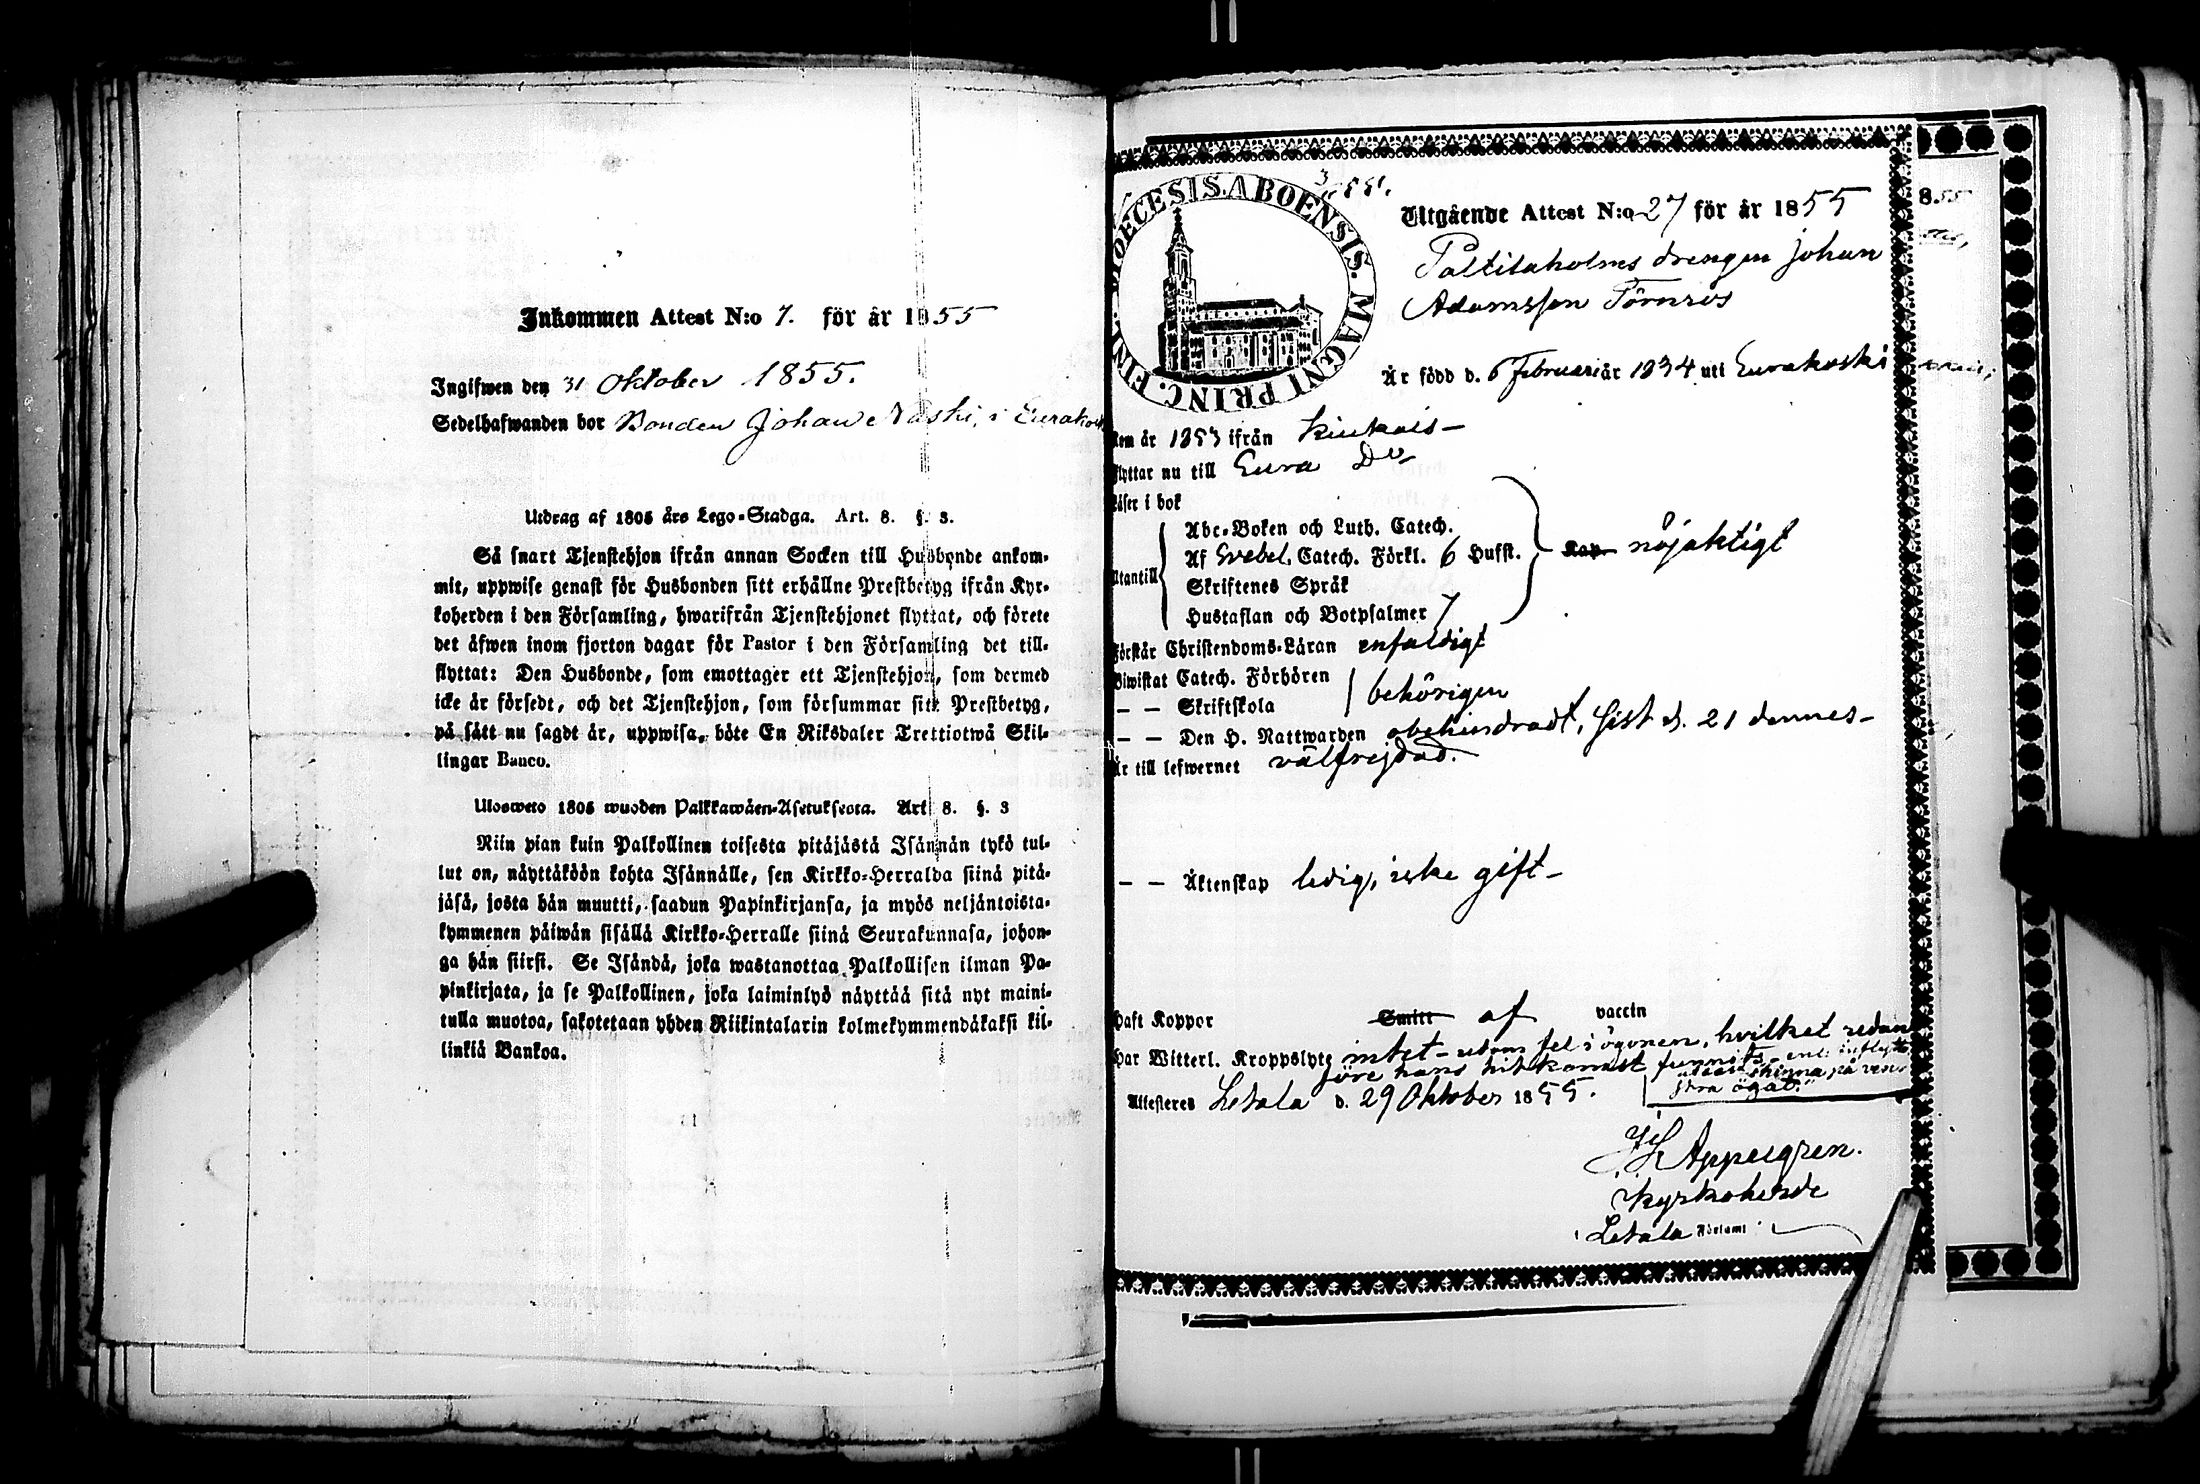 Inkommen Attest N:o 7. för år 1855
Ingifwen den 31 Oktober 1855.
Sedelhafwanden bor Bonden Johan Naski, i Eurakosk
Utdrag af 1805 års Lego-Stadga. Art. 8. §. 3.
Så snart Tjenstehjon ifrån annan Socken till Husbonde ankom-
mit, uppwise genast för Husbonden sitt erhållne Prestbetyg ifrån Kyr-
koherden i den Församling, hwarifrån Tjenstehjonet flyttat, och förete
det äfwen inom fjorton dagar för Pastor i den Församling det till-
flyttat: Den Husbonde, som emottager ett Tjenstehjon, som dermed
icke är försedt, och det Tjenstehjon, som försummar sitt Prestbetyg,
på sätt nu sagdt är, uppwisa, böte En Riksdaler Trettiotwå Skil-
lingar Banco.
Ulosweto 1805 wuoden Palkkawäen-Asetuksesta. Art 8. §. 3
Niin pian kuin Palkollinen toisesta pitäjästä Isännän tykö tul-
lut on, näyttäköön kohta Isännälle, sen Kirkko-Herralda siinä pitä-
jäsä, josta hän muutti, saadun Papinkirjansa, ja myös neljäntoista-
kymmenen päiwän sisällä Kirkko-Herralle siinä Seurakunnasa, johon-
ga hän siirsi. Se Isändä, joka wastanottaa Palkollisen ilman Pa-
pinkirjata, ja se Palkollinen, joka laiminlyö näyttää sitä nyt maini-
tulla muotoa, sakotetaan yhden Riikintalarin kolmekymmendäkaksi kil-
linkiä Bankoa.
DIOECESIS ABOENSIS. MAGNI PRINC. FINL.
Utgående Attest N:o 27 för år 1855
Paltilaholms drengen Johan
Adamsson Törnros
Är född d. 6 Februari år 1834 uti Eurakoski
Kom år 1853 ifrån Kiukais-
flyttar nu till Eura Do
Läser i bok
Abc-Boken och Luth. Catech.
Utantill Af Svebel. Catech. Förkl. 6 Hufst. Kap nöjaktigt
Skriftenes Språk
Hustaflan och Botpsalmer 7
Förstår Christendoms-Läran enfaldigt
Biwistat Catech. Förhören
— — Skriftskola behörigen
— — Den H. Nattwarden obehindradt, sist d. 21 dennes-
Är till lefwernet välfrejdad.
— — Äktenskap ledig, icke gift-
Haft Koppor Smitt af vaccin
Har Witterl. Kroppslyte intet - utom fel i ögonen, hvilket redan
före hans hitkomst funnits - enl: inflytt
skinna på ven-
stra ögat."
Attesteres Letala d. 29 Oktober 1855.
Appelgren.
Kyrkoherde
Letala Förlamt